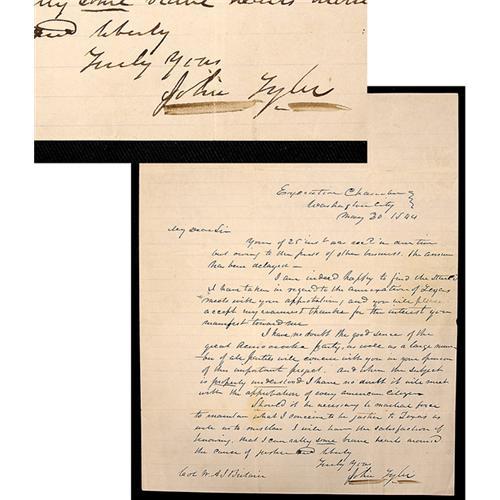 my some brave hearts around
and liberty
Truly Yours
John Tyler
Executive Chamber
Washington City
May 30 1844
My Dear Sir
Yours of 25 inst was recd in due time
but owing to the press of other business. The answer
has been delayed —
I am indeed happy to find the
I have taken in regard to the annexation of Texas
meets with your approbation, and you will please
accept my earnest thanks for the interest you
manifest toward me
I have no doubt the good sense of the
great Democratic party, as well as a large num-
ber of all parties will concur with you in your opinion
of this important project. And when the subject
is properly understood I have no doubt it will meet
with the approbation of every american citizen
Should it be necessary to marshal force
to maintain what I conceive to be justice to Texas
I will have the satisfaction of
knowing that I can rally some brave hearts around
the cause of justice and liberty
Truly Yours
John Tyler
Col W. A.